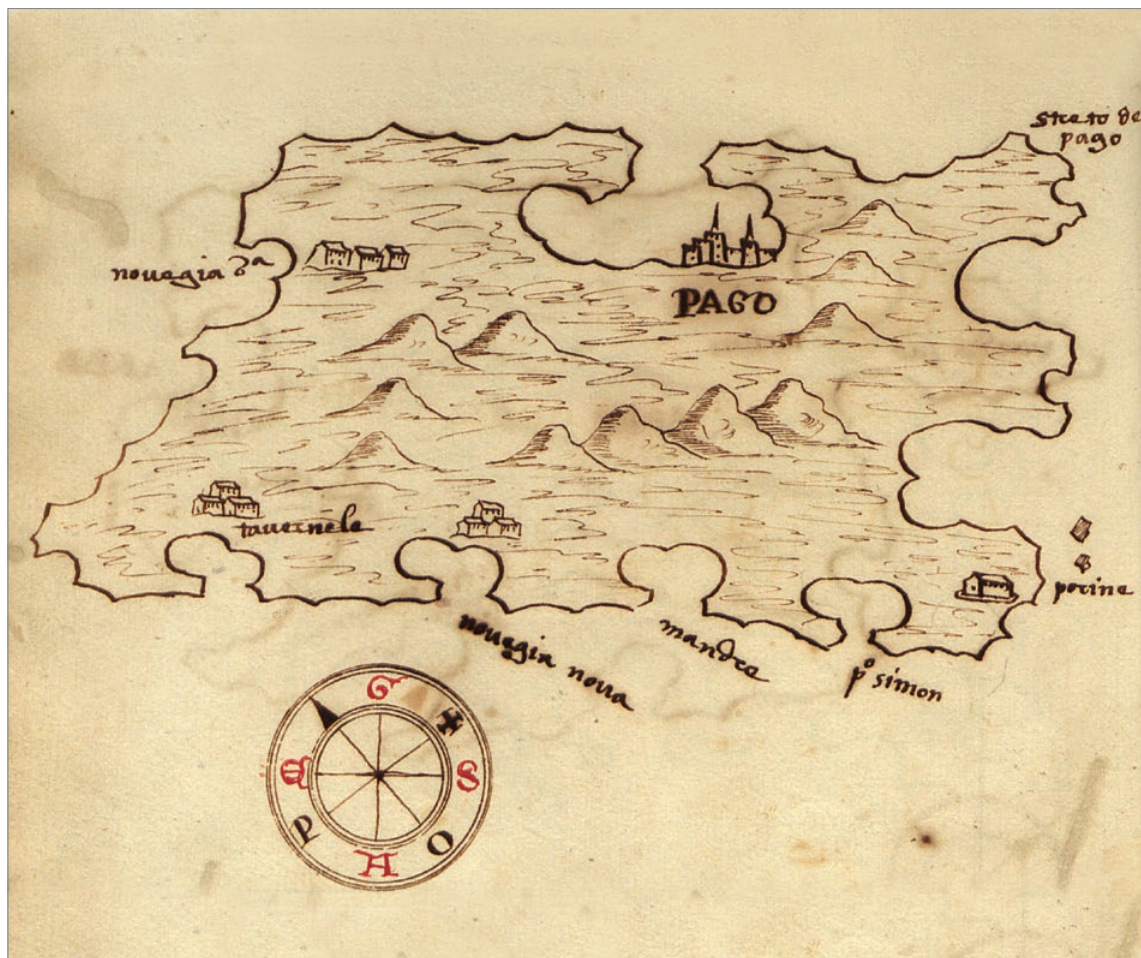 streto de
pago
novegia va
PAGO
tavernele
porine
novegia nova
mandre
po simon
G
S
O
A
P